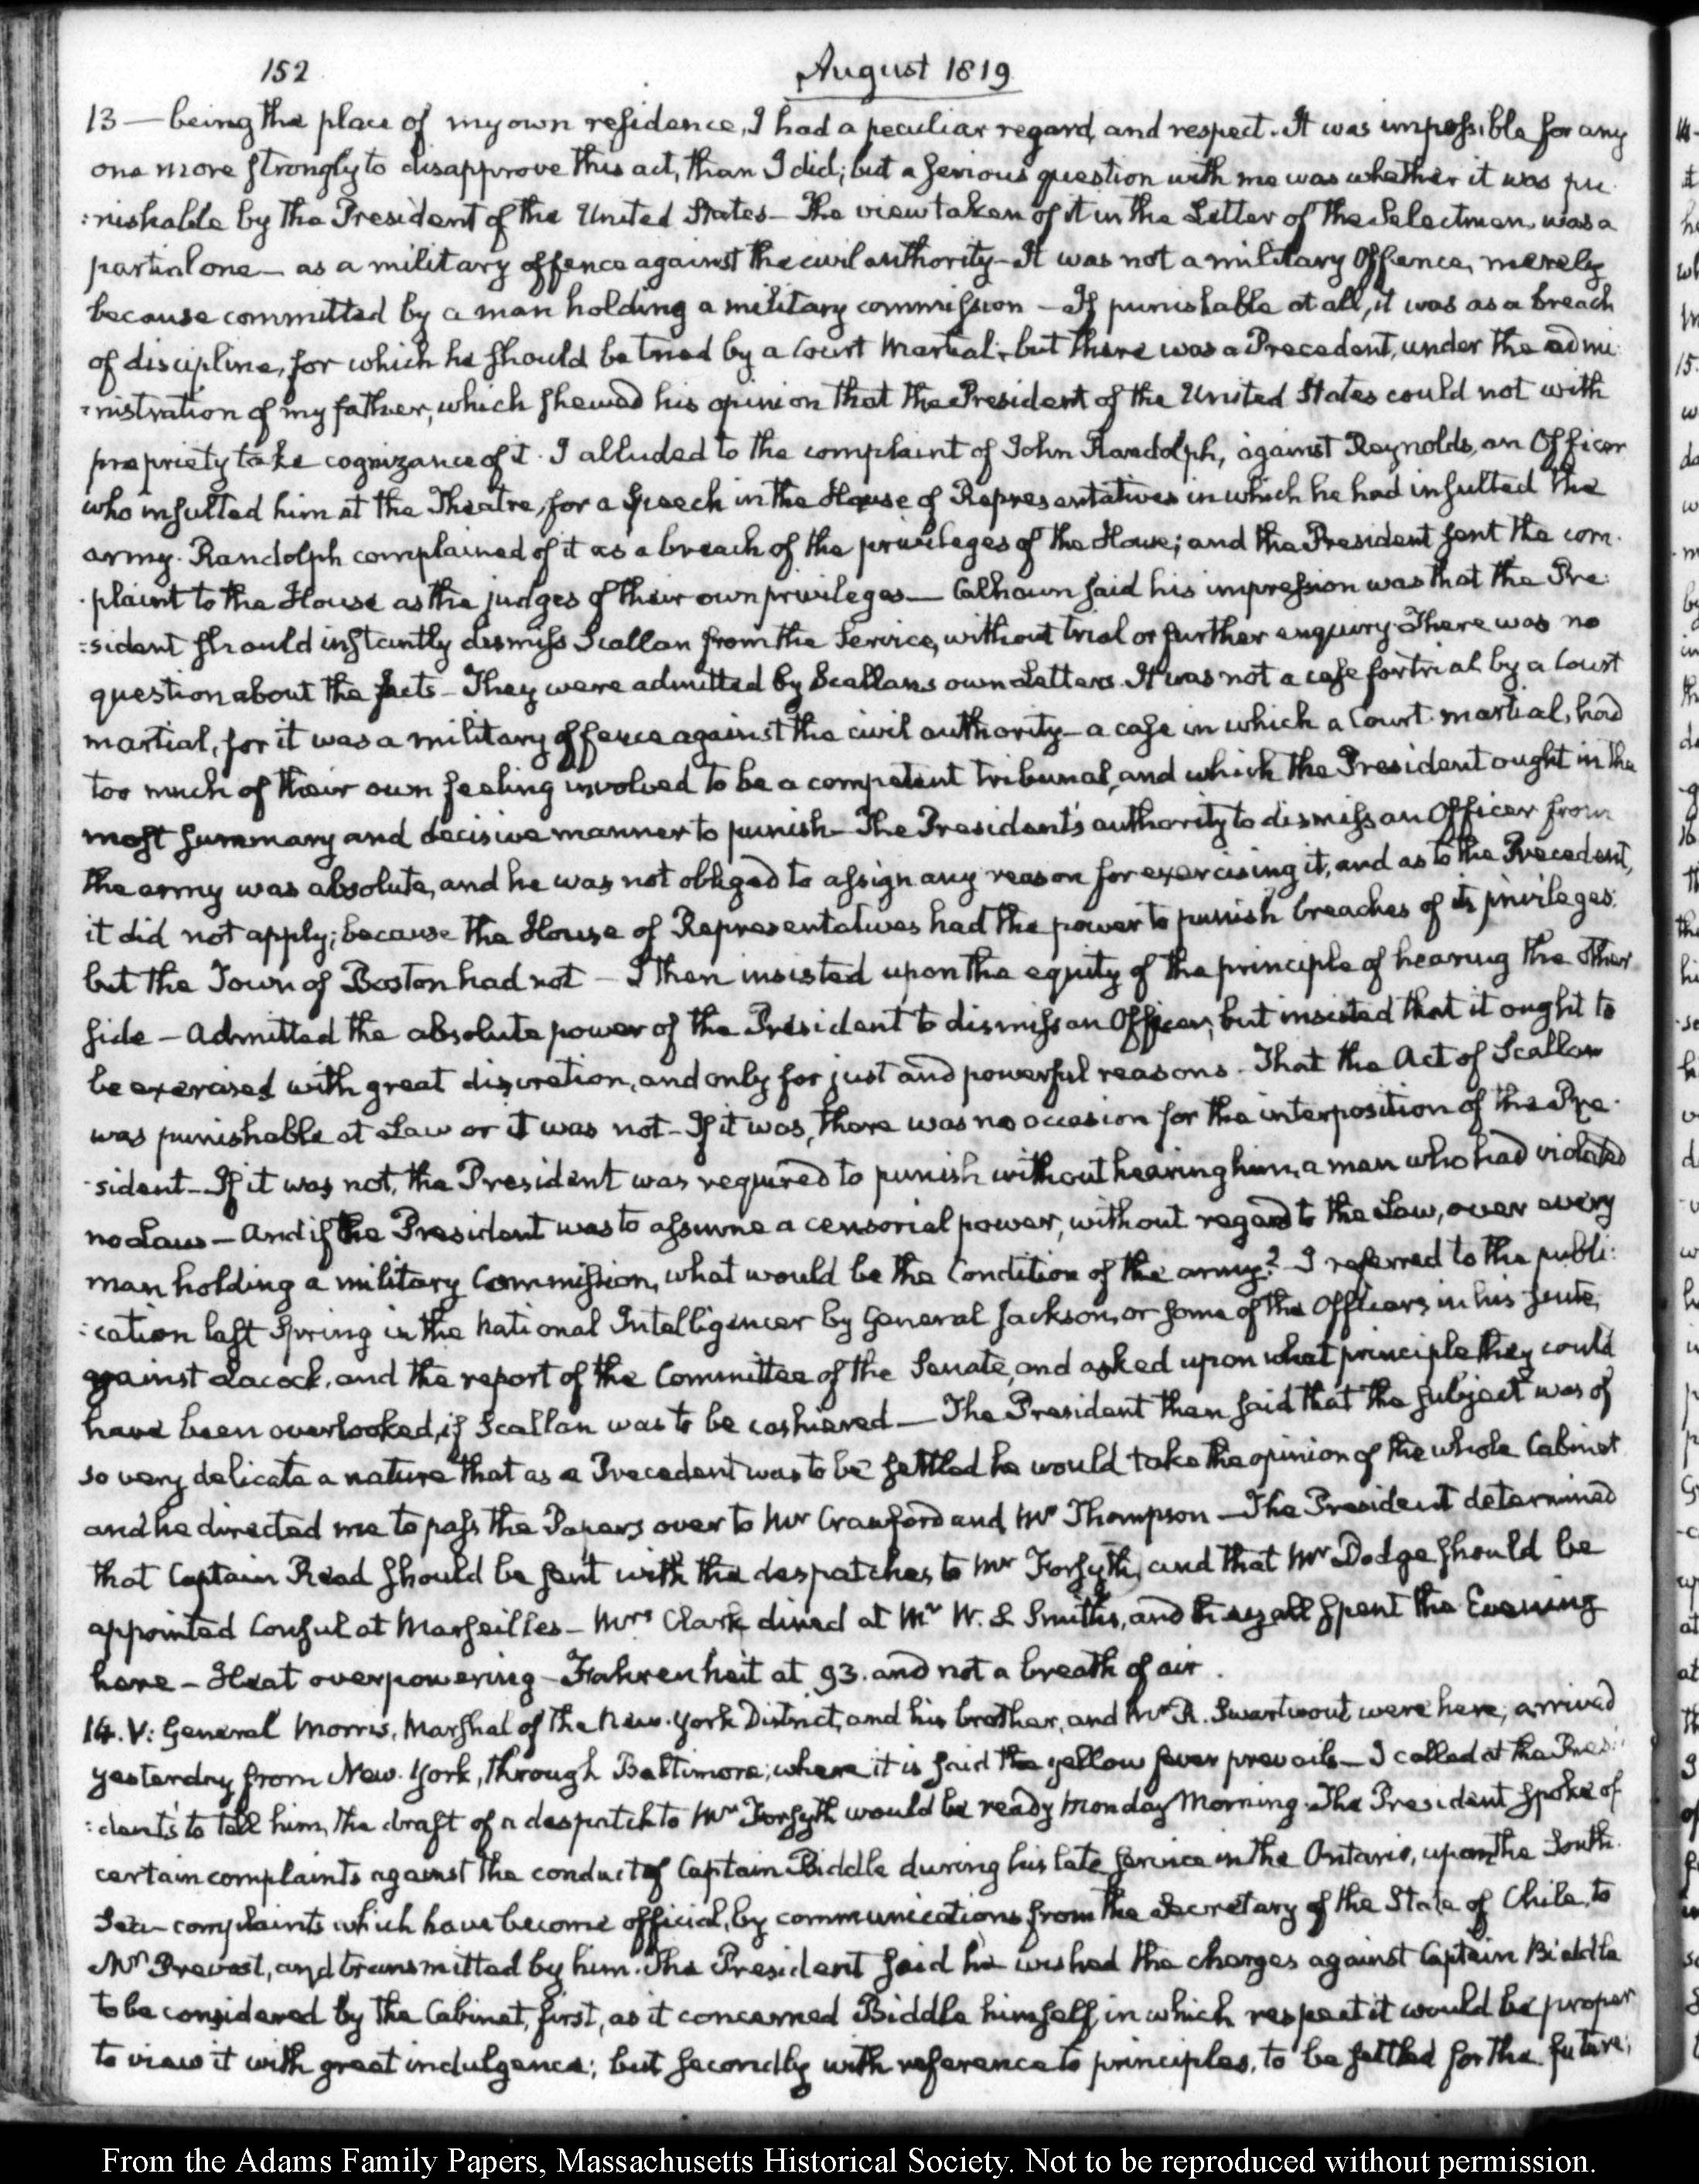 152
August 1819
13 — being the place of my own residence, I had a peculiar regard, and respect. It was impossible for any
one more strongly to disapprove this act, than I did; but a serious question with me was whether it was pu
:nishable by the President of the United States – The view taken of it in the Letter of the Selectmen, was a
partial one – as a military offence against the civil authority – It was not a military Offence, merely
because committed by a man holding a military commission – If punishable at all, it was as a breach
of discipline, for which he should be tried by a Court Martial; but there was a Precedent, under the admi:
:nistration of my father, which shewed his opinion that the President of the United States could not with
propriety take cognizance of it. I alluded to the complaint of John Randolph, against Reynolds, an Officer
who insulted him at the Theatre, for a Speech in the House of Representatives in which he had insulted the
army. Randolph complained of it as a breach of the privileges of the House; and the President sent the com.
.plaint to the House as the judges of their own privileges — Calhoun said his impression was that the Pre:
:sident should instantly dismiss Scallan from the Service, without trial or further enquiry. There was no
question about the facts – They were admitted by Scallans own Letters. It was not a case for trial by a Court
martial, for it was a military offence against the civil authority – a case in which a Court-martial, had
too much of their own feeling involved to be a competent tribunal, and which the President ought in the
most summary and decisive manner to punish – The President's authority to dismiss an Officer from
the army was absolute, and he was not obliged to assign any reason for exercising it, and as to the Precedent,
it did not apply; because the House of Representatives had the power to punish breaches of its privileges.
but the Town of Boston had not – I then insisted upon the equity of the principle of hearing the other
side – Admitted the absolute power of the President to dismiss an Officer; but insisted that it ought to
be exercised with great discretion, and only for just and powerful reasons. That the Act of Scallan
was punishable at Law or it was not – If it was, there was no occasion for the interposition of the Pre.
.sident – If it was not, the President was required to punish without hearing him, a man who had violated
no Law – And if the President was to assume a censorial power, without regard to the Law, over every
man holding a military Commission, what would be the Condition of the army? – I referred to the publi:
:cation last Spring in the National Intelligencer by General Jackson, or some of the Officers in his suite,
against Lacock, and the report of the Committee of the Senate, and asked upon what principle they could
have been overlooked, if Scallan was to be cashiered — The President then said that the subject was of
so very delicate a nature that as a Precedent was to be settled he would take the opinion of the whole Cabinet
and he directed me to pass the Papers over to Mr Crawford and Mr Thompson – The President determined
that Captain Read should be sent with the despatches to Mr Forsyth, and that Mr Dodge should be
appointed Consul at Marseilles – Mrs Clark dined at Mr W. S. Smith's, and they all spent the Evening
here – Heat overpowering – Fahrenheit at 93. and not a breath of air.
14. V: General Morris, Marshal of the New-York District, and his brother, and Mr R. Swartwout were here; arrived
yesterday from New-York, through Baltimore; where it is said the yellow fever prevails – I called at the Presi:
:dent's to tell him, the draft of a despatch to Mr Forsyth would be ready Monday Morning. The President spoke of
certain complaints against the conduct of Captain Biddle during his late service in the Ontario, upon the South
Sea – complaints which have become official, by communications from the Secretary of the State of Chile, to
Mr Prevost, and transmitted by him. The President said he wished the charges against Captain Biddle
to be considered by the Cabinet, first, as it concerned Biddle himself, in which respect it would be proper
to view it with great indulgence; but secondly with reference to principles, to be settled for the future;
From the Adams Family Papers, Massachusetts Historical Society. Not to be reproduced without permission.